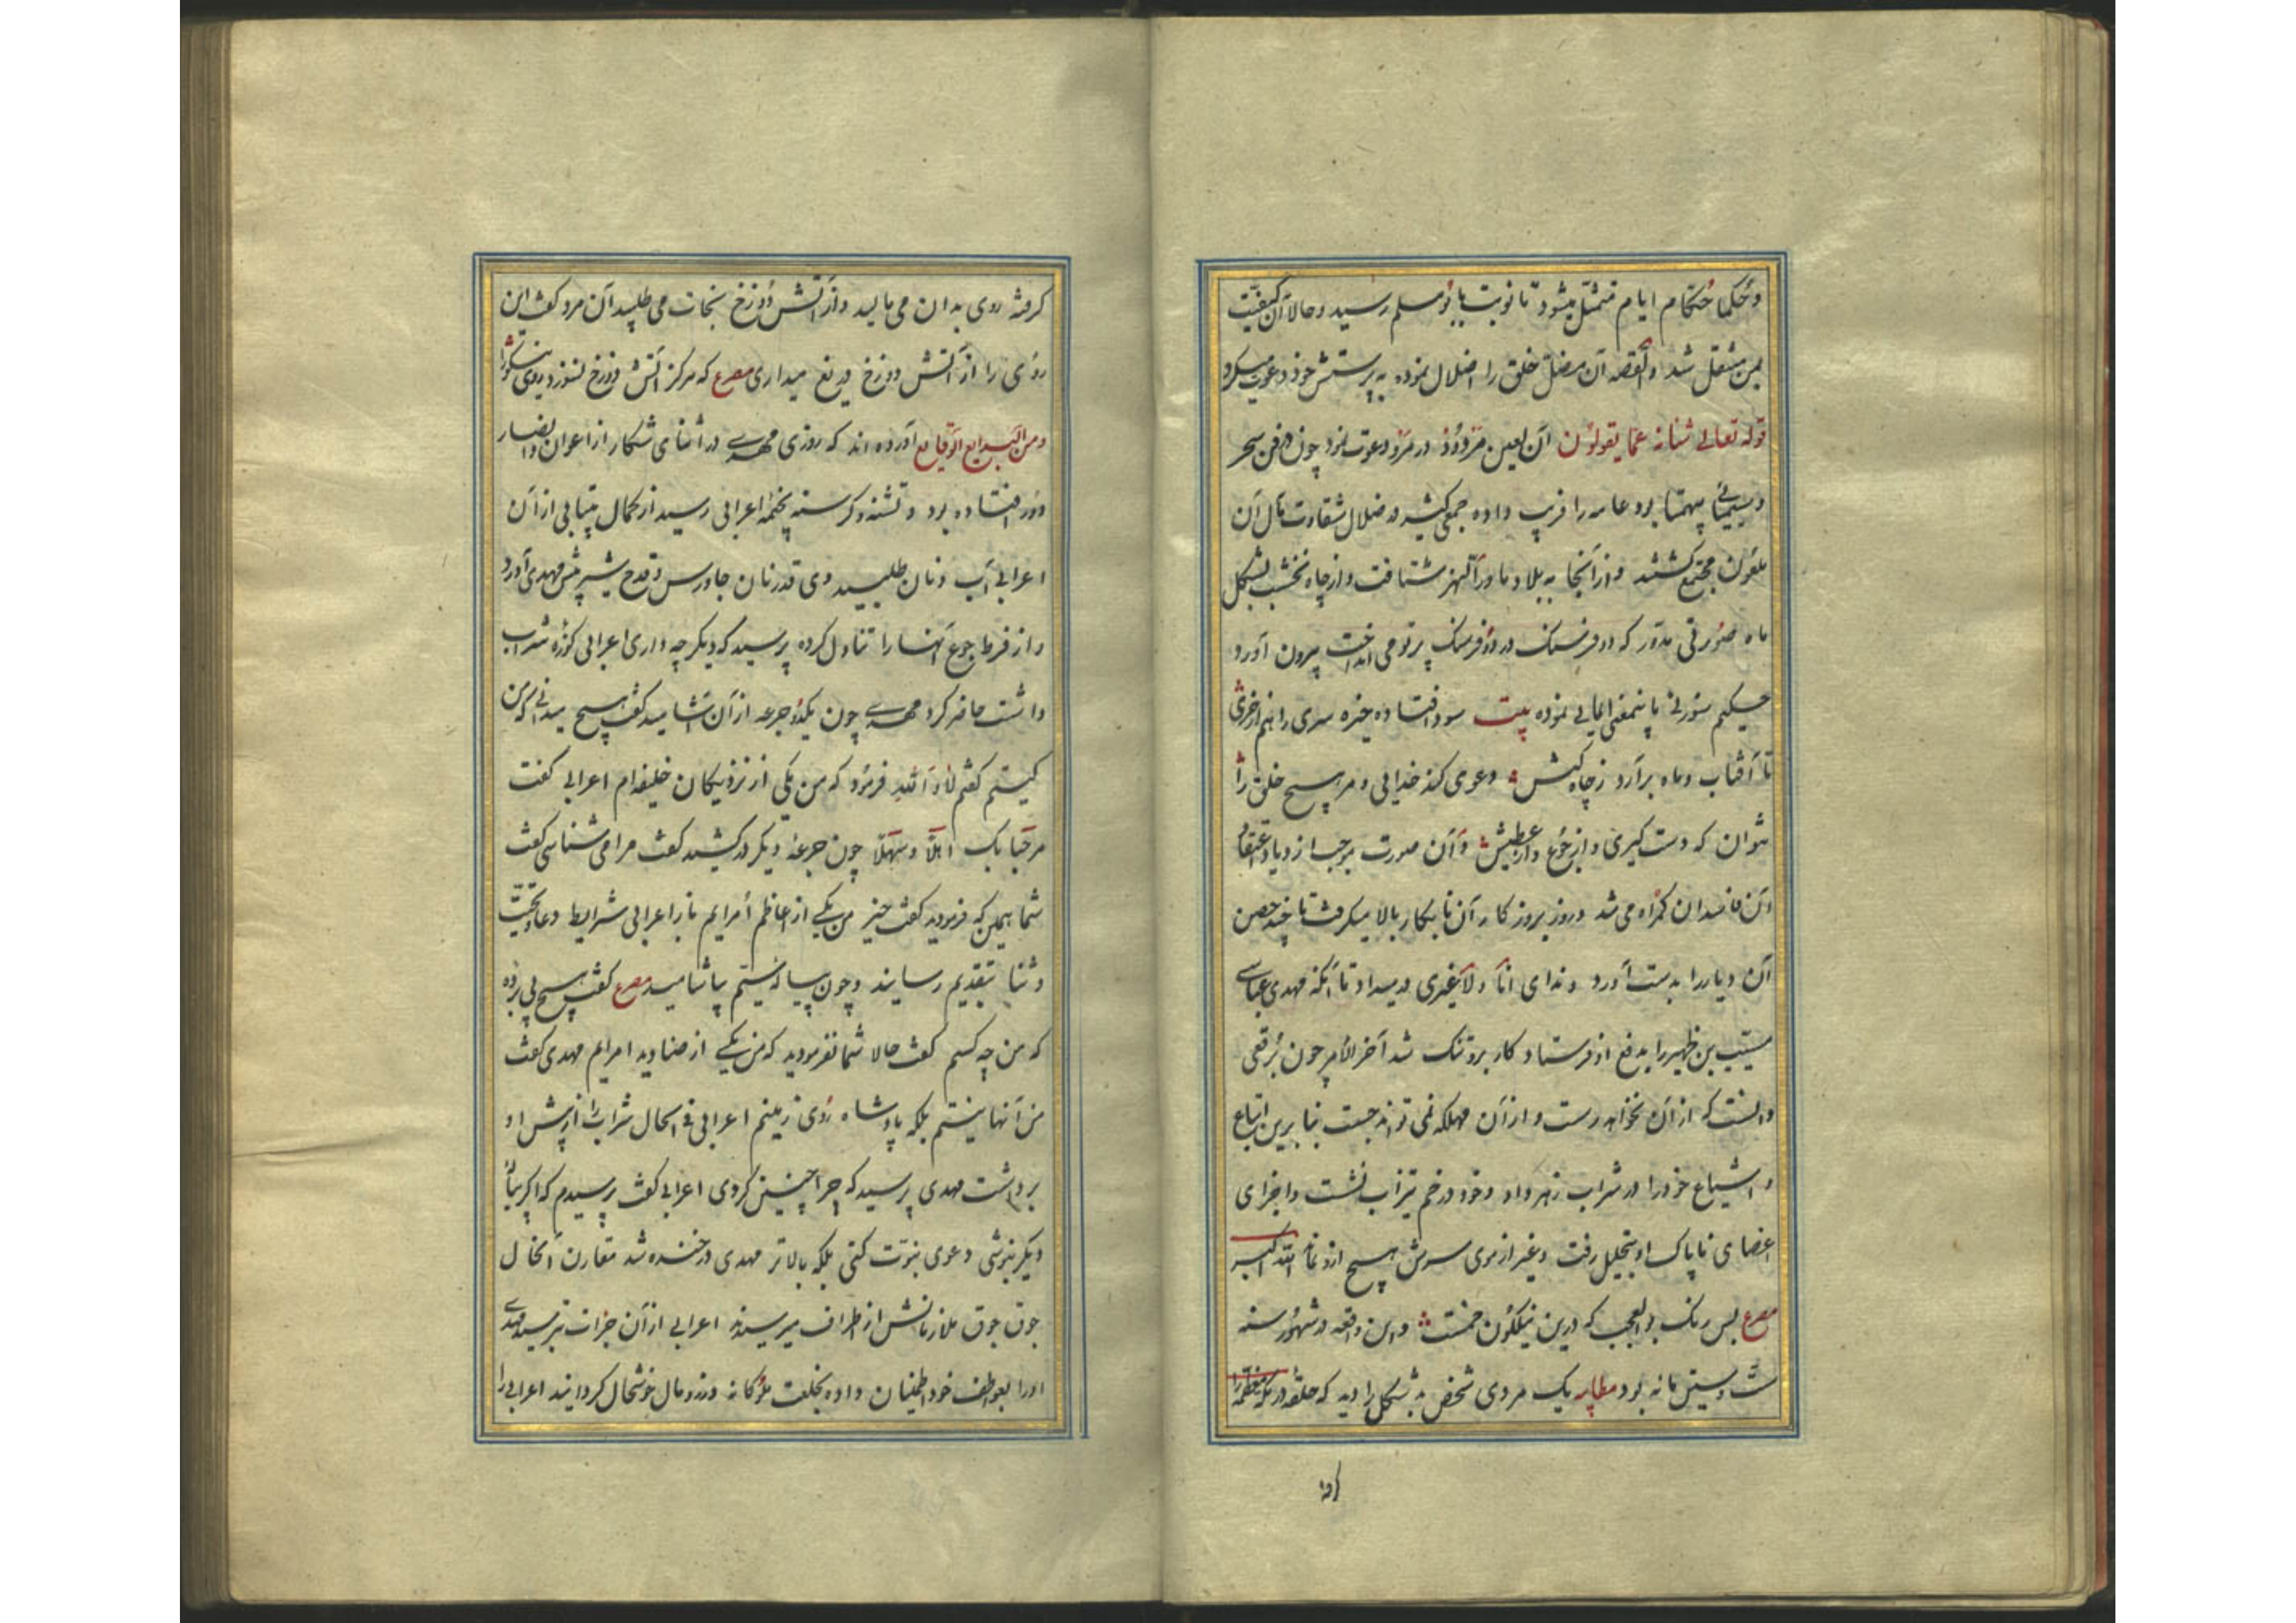 و حکما حکام ایام متمثل میشود تا نوبت بابومسلم رسید و حالا آن کیفیت
بمن منتقل شد والقصه آن مضل خلق را اضلال نموده به پرستش خود دعوت میکرد
قوله تعالی شانه عما یقولون آن لعین مردود در مرو دعوت نمود چون در فن سحر
و سیمیا بیهمتا بود عامه را فریب داده جمعی کثیر در ضلال شقاوت مآل آن
ملعون مجتمع کشتند و از آنجا به بلاد ماورآءالنهر شتافت و از چاه نخشب بشکل
ماه صورتی مدور که دو فرسنک در دو فرسنک پرتو می انداخت بیرون آورد
حکیم سوزنی باینمعنی ایمائی نموده بیت سودا فتاده خیره سری را هم از خری
تا آفتاب و ماه برآرد ز چاه کش دعوی کند خدایی و مر هیچ خلق را
نتوان که دست کیری و از جوع و از عطش و آن صورت موجب ازدیاد اعتقاد
آن فاسدان کمراه می شد و روز بروز کار آن نابکار بالا میکرفت تا چند حصن
آن دیار را بدست آورد و ندای انا و لا غیری در میداد تا آنکه مهدی عباسی
مسیب بن ظهیر را بدفع او فرستاد و کار برو تنک شد آخر الامر چون برقعی
دانست که از آن نخواهد رست و از آن مهلکه نمی تواند جست بنابرین اتباع
و اشیاع خود را در شراب زهر داد و خود در خم تیزاب نشست و اجزای
اعضای ناپاک او بتحلیل رفت و غیر از موی سرش هیچ ازو نماند الله اکبر
مصرع بس رنک بوالعجب که درین نیلکون خمست و این واقعه در شهور سنه
ست و ستین مائه بود مطایبه یک مردی شخص بد شکل را دید که حلقه در مکه معظمه را
کرفته روی بدان می مالید و از آتش دوزخ نجات می طلبید آن مرد کفت این
روی را از آتش دوزخ دریغ میداری مصرع که هرکز آتش دوزخ نسوزد روی نیکو را
و من البدایع الوقایع آورده اند که روزی مهدی در اثنای شکار از اعوان و انصار
دور افتاده بود و تشنه و کرسنه بخیمه اعرابی رسید از کمال بیتابی از آن
اعرابی آب و نان طلبید وی قدر نان جاورس و قدح شیر پیش مهدی آورد
و از فرط جوع آنها را تناول کرده پرسید که دیکر چه داری اعرابی کوزه شراب
داشت حاضر کرد مهدی چون یکدو جرعه از آن آشامید کفت هیچ میدانی که من
کیستم کفتم لا والله فرمود که من یکی از نزدیکان خلیفه ام اعرابی کفت
مرحبا بک اهلا و سهلا چون جرعه دیکر درکشید کفت مرا می شناسی کفت
شما همین که فرمودید کفت خیر من یکی از اعاظم امرایم باز اعرابی شرایط دعا و تحیت
و ثنا بتقدیم رسانید و چون پیاله سیم بیاشامید مصرع کفت هیچ پی برده
که من چه کسم کفت حالا شما نفرمودید که من یکی از صنادید امرایم مهدی کفت
من آنها نیستم بلکه پادشاه روی زمینم اعرابی فی الحال شراب را از پیش او
برداشت مهدی پرسید که چرا چنین کردی اعرابی کفت ترسیدم که اکر پیاله
دیکر بنوشی دعوی نبوت کنی بلکه بالاتر مهدی در خنده شد مقارن آنحال
جوق جوق ملازمانش از اطراف میرسیدند اعرابی از آن جرات ترسید مهدی
او را بعواطف خود اطمینان داده بخلعت ملوکانه و زر و مال خوشحال کردانید اعرابی را